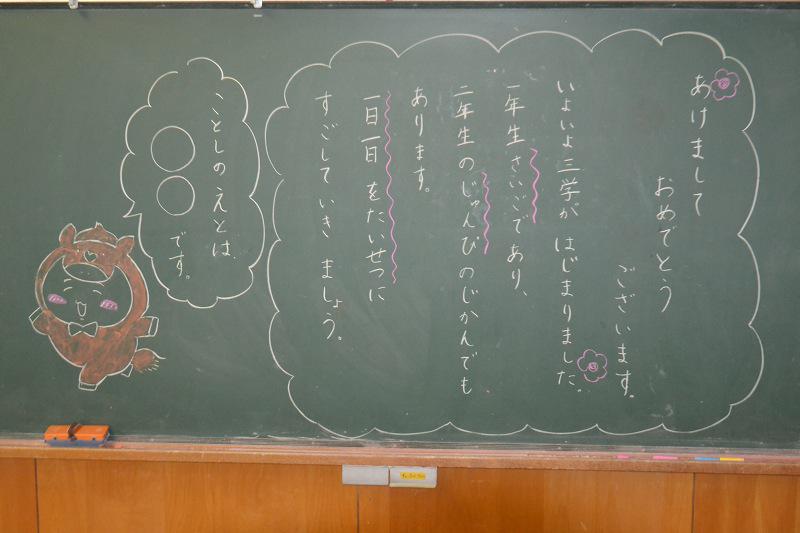 あけまして
おめでとう
ございます。
いよいよ三学が はじまりました。
一年生さいごであり、
二年生のじゅんびのじかんでも
あります。
一日一日をたいせつに
すごしていきましょう。
ことしのえとは、
○○です。